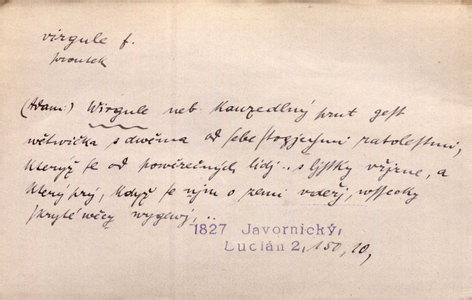 virgule f.
proutek
(Adam:) Wirgule neb kauzedlný prut gest
wětwička s dwěma od sebe stogjcými ratolestmi,
kteryž se od powěrečných lidj .. s lístky vřjzne, a
který prý, když se njm o zemi vdeřj, wssecky
skryté wěcy wygewj, ..
1827 Javornický,
Lucián 2, 150, 10,